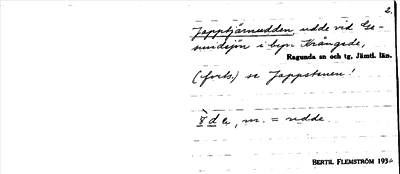 2.
Japptjärnudden udde vid Ge-
sundsjön i byn Krångede,
Ragunda sn och tg, Jämtl. län.
(forts.) se Jappstenen!
d e, m. = udde
BERTIL FLEMSTRÖM 193